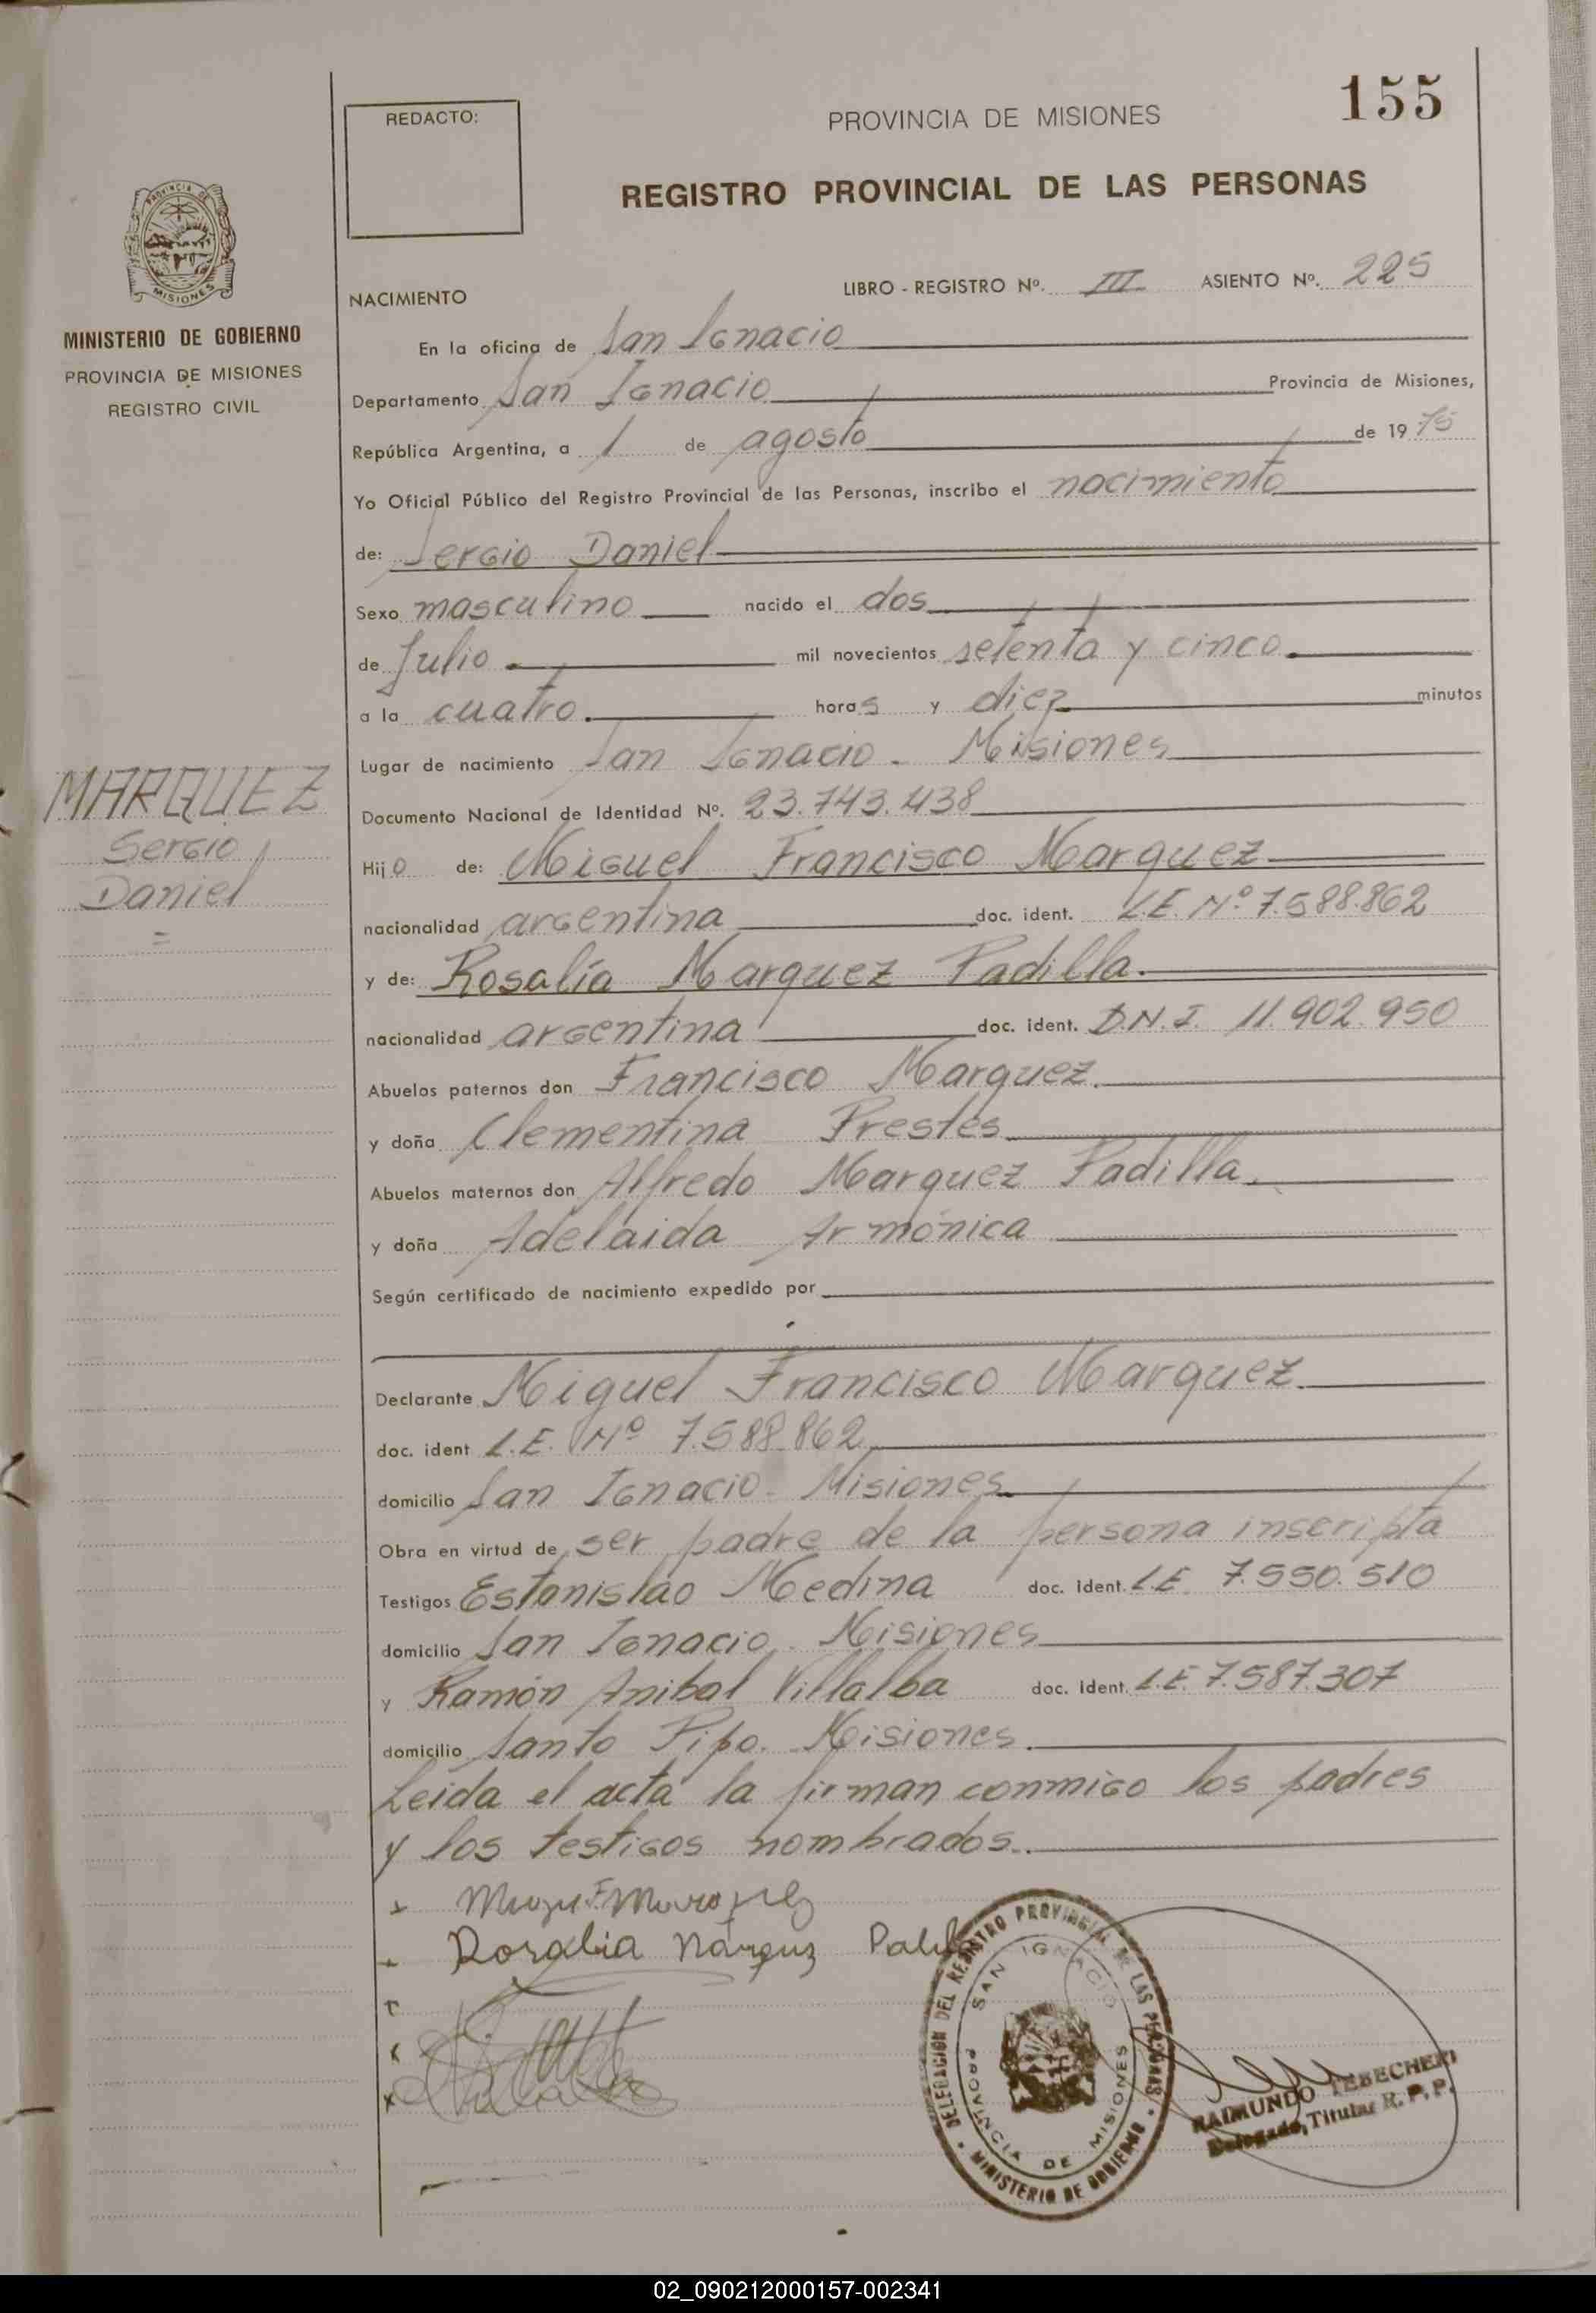 155
REDACTO:
PROVINCIA DE MISIONES
REGISTRO PROVINCIAL DE LAS PERSONAS
PROVINCIA DE
MISIONES
MINISTERIO DE GOBIERNO
PROVINCIA DE MISIONES
REGISTRO CIVIL
NACIMIENTO
LIBRO - REGISTRO Nº. III ASIENTO Nº. 225
En la oficina de San Ignacio
Departamento San Ignacio Provincia de Misiones,
República Argentina, a 1 de agosto de 1975
Yo Oficial Público del Registro Provincial de las Personas, inscribo el nacimiento
de: Sergio Daniel
Sexo masculino nacido el dos
de Julio. mil novecientos setenta y cinco.
a la cuatro. horas y diez minutos
Lugar de nacimiento San Ignacio - Misiones
MARQUEZ
Sergio
Daniel
=
Documento Nacional de Identidad Nº. 23.743.438
Hijo de: Miguel Francisco Marquez
nacionalidad argentina doc. ident. L.E. Nº 7.588.862
y de: Rosalía Marquez Padilla.
nacionalidad argentina doc. ident. D.N.I. 11.902.950
Abuelos paternos don Francisco Marquez.
y doña Clementina Prestes
Abuelos maternos don Alfredo Marquez Padilla.
y doña Adelaida Armónica
Según certificado de nacimiento expedido por
Declarante Miguel Francisco Marquez.
doc. ident L.E. Nº 7.588.862
domicilio San Ignacio - Misiones
Obra en virtud de ser padre de la persona inscripta
Testigos Estanislao Medina doc. ident. L.E. 7.550.510
domicilio San Ignacio - Misiones
y Ramón Anibal Villalba doc. Ident. L.E. 7.587.307
domicilio Santo Pipo. Misiones.
Leida el acta la firman conmigo los padres
y los testigos nombrados.
Rosalia Marquez Padilla
DELEGACION DEL REGISTRO PROVINCIAL DE LAS PERSONAS
SAN IGNACIO
PROVINCIA DE MISIONES
MINISTERIO DE GOBIERNO
RAIMUNDO TEBECHERI
Delegado Titular R. P. P.
02_090212000157-002341